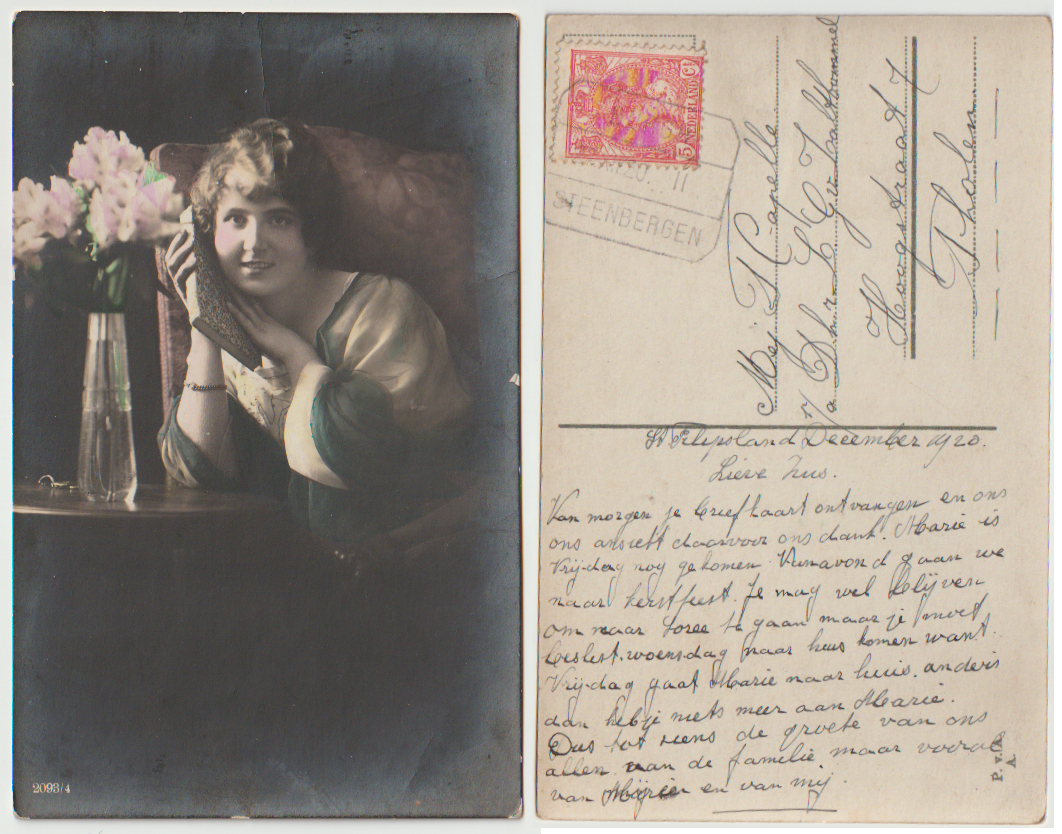 2093/4
5 NEDERLAND Ct
20. 11
STEENBERGEN
Mej T Capelle
Hoogstraat 7
Tholen
St Filipsland December 1920.
Lieve Zus.
Van morgen je briefkaart ontvangen en ons
ons ansicht daarvoor ons dank. Marie is
Vrijdag nog gekomen. Vanavond gaan we
naar kerstfeest. Je mag wel blijven
om naar te gaan maar je moet
beslist woensdag naar huis komen want.
Vrijdag gaat Marie naar huis. anders
dan heb je niets meer aan Marie.
Dus tot ziens de groete van ons
allen van de familie. maar vooral
van en van mij.
P. v.
A.